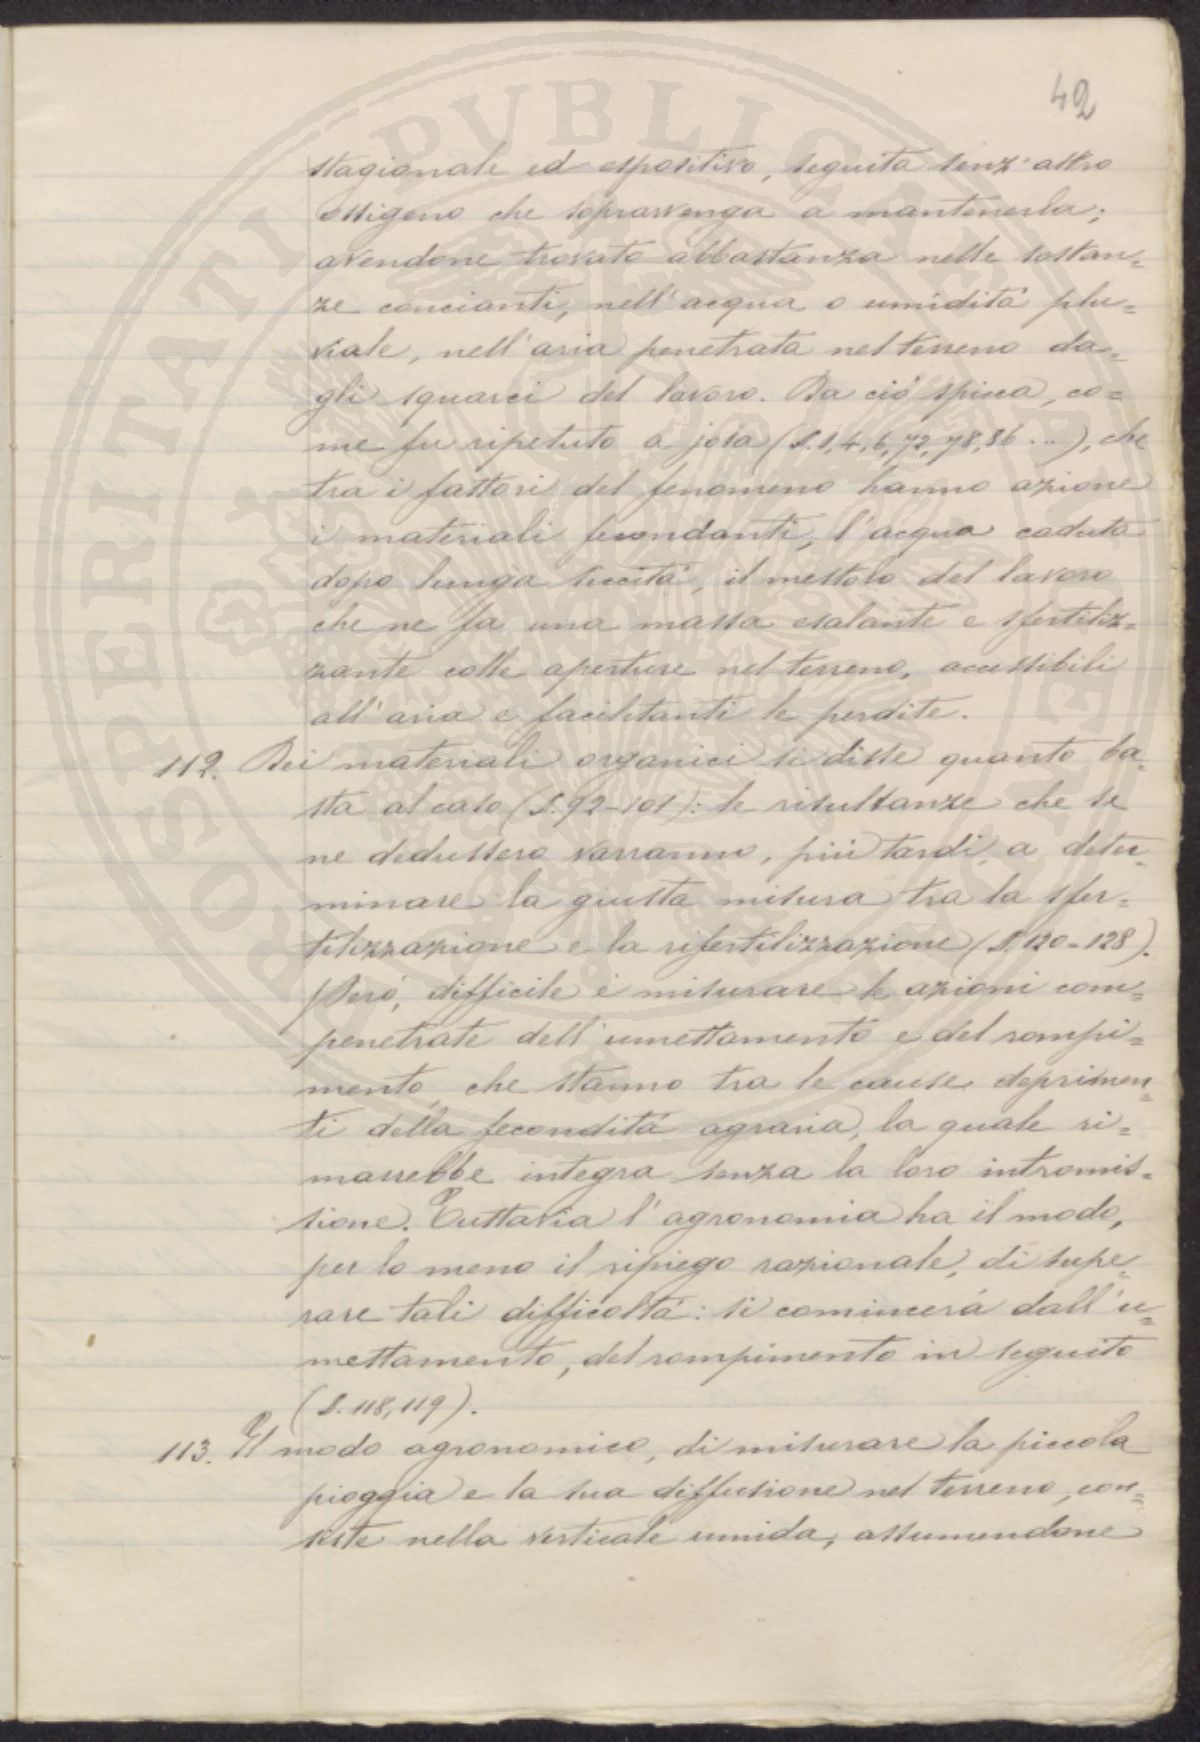 42
stagionale ed espositivo, seguita senz'altro
ossigeno che sopravvenga a mantenerla;
avendone trovato abbastanza nelle sostan=
ze concianti, nell'acqua o umidità plu=
viale, nell'aria penetrata nel terreno da=
gli squarci del lavoro. Da ciò spicca, co=
me fu ripetuto a josa (S. 1, 4, 6, 72, 78, 86 ...), che
tra i fattori del fenomeno hanno azione
i materiali fecondanti, l'acqua caduta
dopo lunga siccità, il mestolo del lavoro
che ne fa una massa esalante e sfertiliz=
zante colle aperture nel terreno, accessibili
all'aria e facilitanti le perdite.
112. Dei materiali organici si disse quanto ba=
sta al caso (S. 92-101): le risultanze che se
ne dedussero varranno, più tardi, a deter=
minare la giusta misura tra la sfer=
tilizzazione e la rifertilizzazione (S. 120-128).
Però, difficile è misurare le azioni com=
penetrate dell'umettamento e del rompi=
mento, che stanno tra le cause deprimen=
ti della fecondità agraria, la quale ri=
marrebbe integra senza la loro intromis=
sione. Tuttavia l'agronomia ha il modo,
per lo meno il ripiego razionale, di supe=
rare tali difficoltà: si comincerà dall'u=
mettamento, del rompimento in seguito
(S. 118, 119).
113. Il modo agronomico, di misurare la piccola
pioggia e la sua diffusione nel terreno, con=
siste nella verticale umida, assumendone
PROSPERITATI PUBLICAE